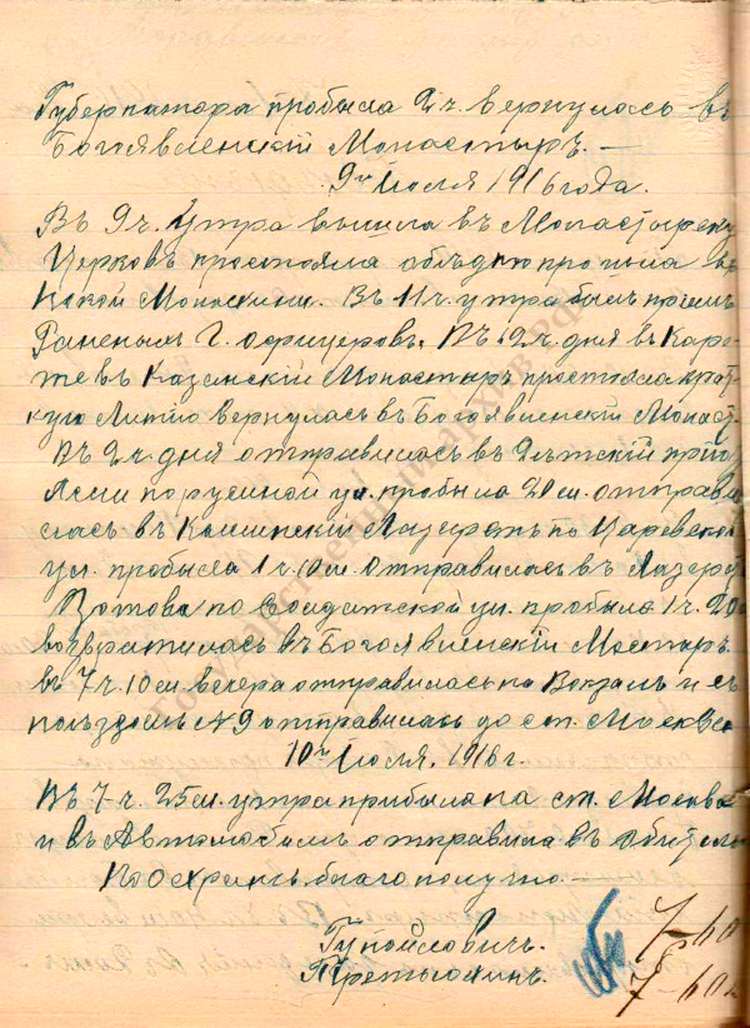 Губернатора пробыла 2 ч. вернулась въ
Богоявленскiй Монастырь. —
9го Июля 1916 года.
Въ 9 ч. Утра вышла въ Монастырску
Церковь простояла обѣдню
Въ 11 ч. утра былъ
Раненымъ Г. офицеровъ. Въ 12 ч. дня въ Каре-
те въ Казанскiй Монастырь простояла крат-
кую Литiю вернулась въ Богоявленскiй Монаст.
Въ 2 ч. дня отправилась въ Дѣтскiй прiю
Ясли по ул. пробыла 20 м. отправи
лась въ Лазаретъ по Царевской
ул. пробыла 1 ч. 10 м. отправилась въ Лазаре
Зотова по Солдатской ул. пробыла 1 ч. 20
возвратилась въ Богоявленскiй
въ 7 ч. 10 м. вечера отправилась на Вокзалъ и съ
поѣздомъ № 9 отправилась до ст. Москва
10го Июля. 1916 г.
Въ 7 ч. 25 м. утра прибыла на ст. Москва
и въ Автомобилѣ отправила въ обитель
По Охранѣ благополучно. —
7-60
7-60
Государственный архив РФ